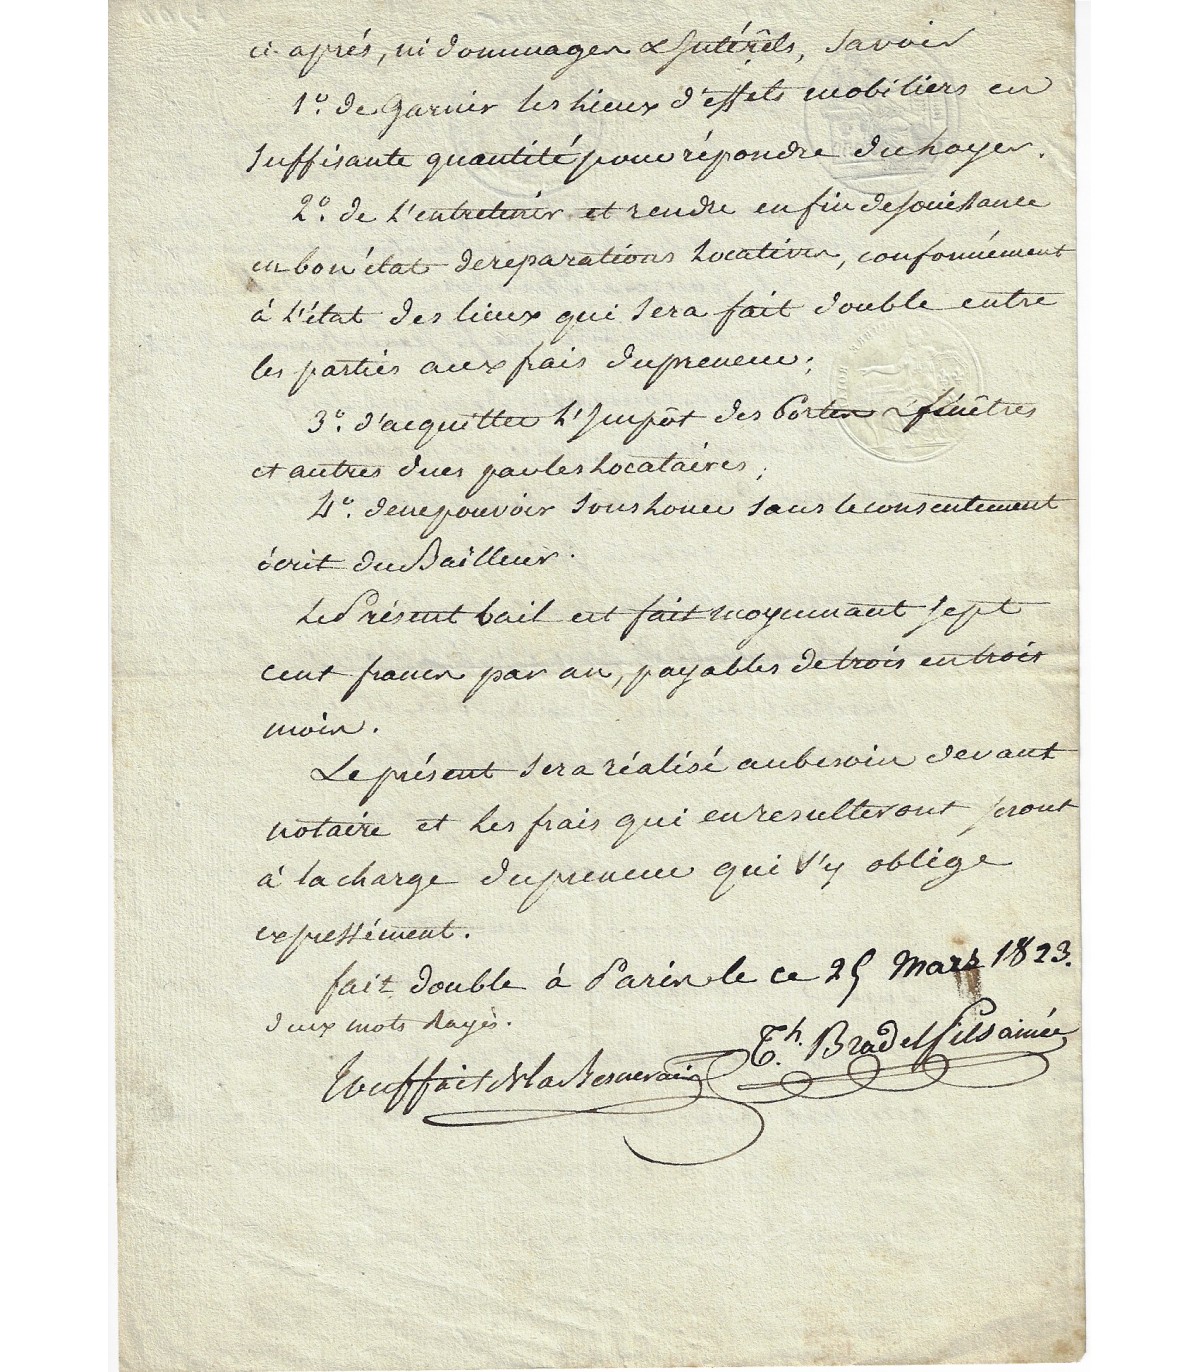 ci-après, ni dommages & Intérêts, Savoir
1° de Garnir les lieux d'effets mobiliers en
suffisante quantité pour répondre du loyer.
2° de l'entretenir et rendre en fin de jouissance
en bon état de réparations locatives, conformément
à l'état des lieux qui sera fait double entre
les parties aux frais du preneur;
3° d'acquitter l'Impôt des Portes & fenêtres
et autres dues par les locataires;
4° de ne pouvoir sous louer sans le consentement
écrit du Bailleur.
Le Présent bail est fait moyennant sept
cent francs par an, payables de trois en trois
mois.
Le présent sera réalisé au besoin devant
notaire et les frais qui en resulteront seront
à la charge du preneur qui s'y oblige
expressément.
fait double à Paris le ce 25 Mars 1823.
deux mots rayés.
Th. Bradel fils ainée